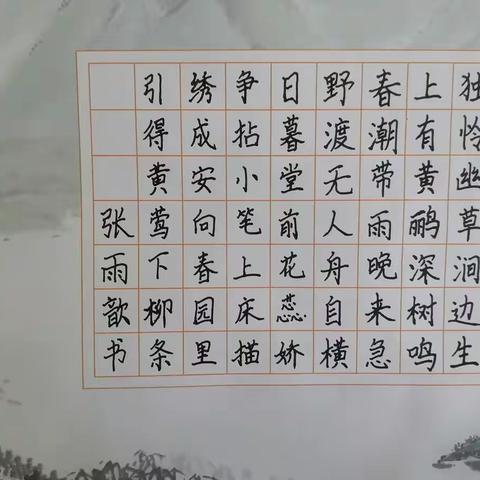 独怜幽草涧边生
上有黄鹂深树鸣
春潮带雨晚来急
野渡无人舟自横
日暮堂前花蕊娇
争拈小笔上床描
绣成安向春园里
引得黄莺下柳条
张雨歆书